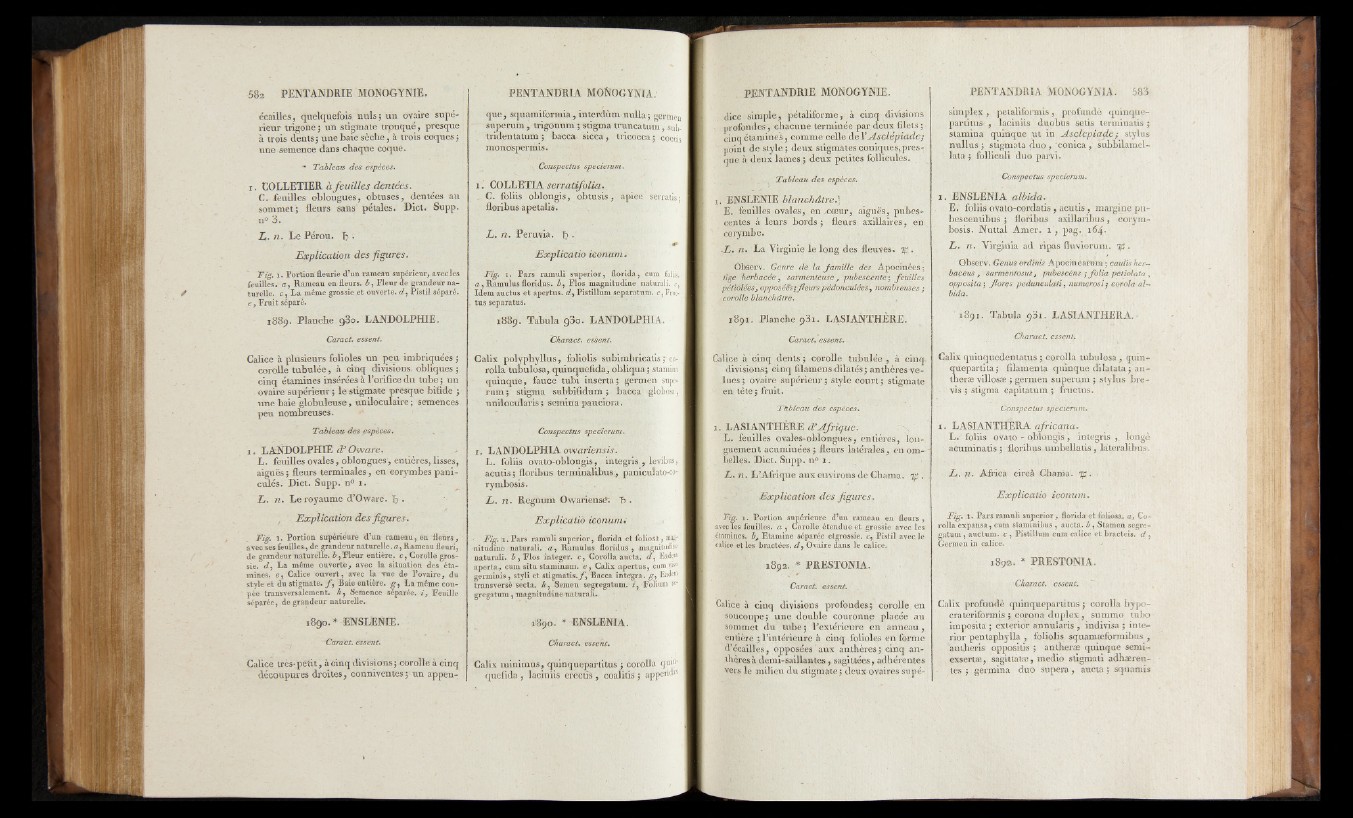 582 PENTANDRIE MONOGYNIE.
écailles, quelquefois nuls; un ovaire supé-
rieur trigone; un stigmate tronqué, presque
à trois dents; une baie sèche, à trois coques;
une semence dans chaque coque.
Tableau des espèces.
1. COLLETIER à feuilles dentées.
C. feuilles oblongues, obtuses, dentées au
sommet; fleurs sans pétales. Dict. Supp.
n° 3.
L. n. Le Pérou. ♄.
Explication des figures.
Fig. 1. Portion fleurie d'un rameau supérieur, avec les
feuilles. a, Rameau en fleurs. b, Fleur de grandeur na-
turelle. c, La même grossie et ouverte. d, Pistil séparé.
e, Fruit séparé.
1889. Planche 930. LANDOLPHIE.
Caract. essent.
Calice à plusieurs folioles un peu imbriquées;
corolle tubulée, à cinq divisions obliques;
cinq étamines insérées à l'orifice du tube; un
ovaire supérieur; le stigmate presque bifide;
une baie globuleuse, uniloculaire; semences
peu nombreuses.
Tableau des espèces.
1. LANDOLPHIE d'Oware.
L. feuilles ovales, oblongues, entières, lisses,
aiguës; fleurs terminales, en corymbes pani-
culés. Dict. Supp. n° 1.
L. n. Le royaume d'Oware. ♄.
Explication des figures.
Fig. 1. Portion supérieure d'un rameau, en fleurs,
avec ses feuilles, de grandeur naturelle. a, Rameau fleuri,
de grandeur naturelle. b, Fleur entière. c, Corolle gros-
sie. d, La même ouverte, avec la situation des éta-
mines. e, Calice ouvert, avec la vue de l'ovaire, du
style et du stigmate. f, Baie entière. g, La même cou-
pée transversalement. h, Semence séparée. i, Feuille
séparée, de grandeur naturelle.
1890. * ENSLENIE.
Caract. essent.
Calice très-petit, à cinq divisions; corolle à cinq
découpures droites, conniventes; un appen-
PENTANDRIA MONOGYNIA.
que, squamiformia, interdùm nulla; germen
superum, trigonum; stigma truncatum, sub-
tridentatum; bacca sicca, tricocca; coccis
monospermis.
Conspectus specierum.
1. COLLETIA serratifolia.
C. foliis oblongis, obtusis, apice serratis;
floribus apetalis.
L. n. Peruvia. ♄.
Explicatio iconum.
Fig. 1. Pars ramuli superior, florida, cum foliis.
a, Ramulus floridus. b, Flos magnitudine naturali. c,
Idem auctus et apertus. d, Pistillum separatum. e, Fruc-
tus separatus.
1889. Tabula 930. LANDOLPHIA.
Charact. essent.
Calix polyphyllus, foliolis subimbricatis; co-
rolla tubulosa, quinquefida, obliqua; stamina
quinque, fauce tubi inserta; germen supe-
rum; stigma subbifidum; bacca globosa,
unilocularis; semina pauciora.
Conspectus specierum.
1. LANDOLPHIA owariensis.
L. foliis ovato-oblongis, integris, levibus,
acutis; floribus terminalibus, paniculato-co-
rymbosis.
L. n. Regnum Owariense. ♄.
Explicatio iconum.
Fig. 1. Pars ramuli superior, florida et foliosa, mag-
nitudine naturali. a, Ramulus floridus, magnitudine
naturali. b, Flos integer. c, Corolla aucta. d, Eadem
aperta, cum situ staminum. e, Calix apertus, cum visu
germinis, styli et stigmatis. f, Bacca integra. g, Eadem
transversè secta. h, Semen segregatum. i, Folium se-
gregatum, magnitudine naturali.
1890. * ENSLENIA.
Charact. essent.
Calix minimus, quinquepartitus; corolla quin-
quefida, laciniis erectis, coalitis; appendice
PENTANDRIE MONOGYNIE.
dice simple, pétaliforme, à cinq divisions
profondes, chacune terminée par deux filets;
cinq étamines, comme celle de l'Asclépiade;
point de style; deux stigmates coniques, pres-
que à deux lames; deux petites follicules.
Tableau des espèces.
1. ENSLENIE blanchâtre.
E. feuilles ovales, en cœur, aiguës, pubes-
centes à leurs bords; fleurs axillaires, en
corymbe.
L. n. La Virginie le long des fleuves. ♃.
Observ. Genre de la famille des Apocinées;
tige herbacée, sarmenteuse, pubescente; feuilles
pétiolées, opposées; fleurs pédonculées, nombreuses;
corolle blanchâtre.
1891. Planche 931. LASIANTHÈRE.
Caract. essent.
Calice à cinq dents; corolle tubulée, à cinq
divisions; cinq filamens dilatés; anthères ve-
lues; ovaire supérieur; style court; stigmate
en tête; fruit.
Tableau des espèces.
1. LASIANTHÈRE d'Afrique.
L. feuilles ovales-oblongues, entières, lon-
guement acuminées; fleurs latérales, en om-
belles. Dict. Supp. n° 1.
L. n. L'Afrique aux environs de Chama. ♃.
Explication des figures.
Fig. 1. Portion supérieure d'un rameau en fleurs,
avec les feuilles. a, Corolle étendue et grossie avec les
étamines. b, Etamine séparée et grossie. c, Pistil avec le
calice et les bractées. d, Ovaire dans le calice.
1892. * PRESTONIA.
Caract. essent.
Calice à cinq divisions profondes; corolle en
soucoupe; une double couronne placée au
sommet du tube; l'extérieure en anneau,
entière; l'intérieure à cinq folioles en forme
d'écailles, opposées aux anthères; cinq an-
thères à demi-saillantes, sagittées, adhérentes
vers le milieu du stigmate; deux ovaires supé-
PENTANDRIA MONOGYNIA. 583
simplex, petaliformis, profundè quinque-
partitus, laciniis duobus setis terminatis;
stamina quinque ut in Asclepiade; stylus
nullus; stigmata duo, conica, subbilamel-
lata; folliculi duo parvi.
Conspectus specierum.
1. ENSLENIA albida.
E. foliis ovato-cordatis, acutis, margine pu-
bescentibus; floribus axillaribus, corym-
bosis. Nuttal Amer. 1, pag. 164.
L. n. Virginia ad ripas fluviorum. ♃.
Observ. Genus ordinis Apocinearum; caulis her-
baceus, sarmentosus, pubescens; folia petiolata,
opposita; flores pedunculati, numerosi; corola al-
bida.
1891. Tabula 931. LASIANTHERA.
Charact. essent.
Calix quinquedentatus; corolla tubulosa, quin-
quepartita; filamenta quinque dilatata; an-
theræ villosæ; germen superum; stylus bre-
vis; stigma capitatum; fructus.
Conspectus specierum.
1. LASIANTHERA africana.
L. foliis ovato-oblongis, integris, longè
acuminatis; floribus umbellatis, lateralibus.
L. n. Africa circà Chama. ♃.
Explicatio iconum.
Fig. 1. Pars ramuli superior, florida et foliosa. a, Co-
rolla expansa, cum staminibus, aucta. b, Stamen segre-
gatum, auctum. c, Pistillum cum calice et bracteis. d,
Germen in calice.
1892. * PRESTONIA.
Charact. essent.
Calix profundè quinquepartitus; corolla hypo-
crateriformis; corona duplex, summo tubo
imposita; exterior annularis, indivisa; inte-
rior pentaphylla, foliolis squamæformibus,
antheris oppositis; antheræ quinque semi-
exsertæ, sagittatæ, medio stigmati adhæren-
tes; germina duo supera, aucta; squamis